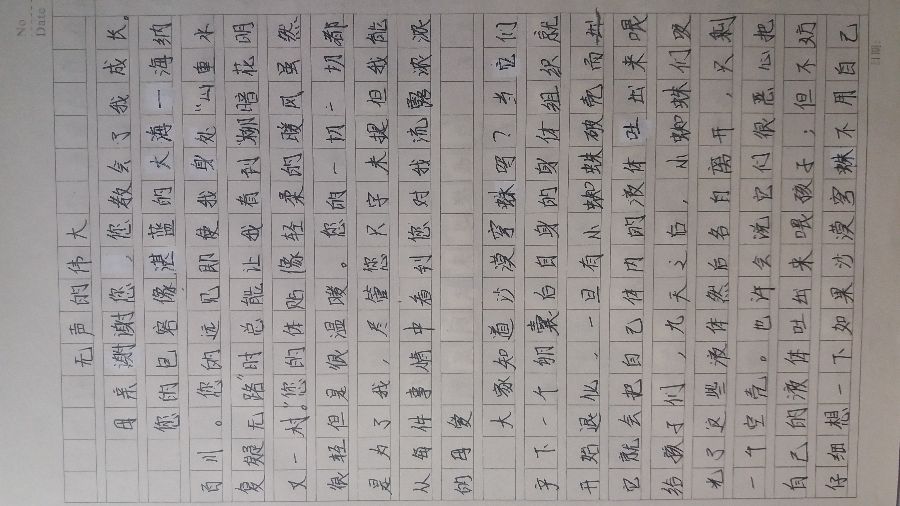 No
Date
无声的伟大
母亲，谢谢您，您教会了我成长。
您的包容像湛蓝的大海一海纳
百川。您的远见即使我身处“山重水
复疑无路”时总能让我看到“柳暗花明
又一村。”您的体贴像轻柔的暖风虽然
很轻但是很温暖。您的一切一切都
是为了我，尽管您只字未提但我能
从每件事情中看到您对我流露浓浓
的母爱
大家知道沙漠穹蛛吗？当它们
产下一个卵囊后自身的身体组织就
开始退化，一旦有小蜘蛛破壳而出
它就会把自己体内的液体吐出来喂
给孩子们，九天之后，小蜘蛛们吸
光了这些液体然后各自离开，只剩
一个空壳。也许会说它们很恶心把
自己的液体吐出来喂孩子；但不妨
仔细想一下如果沙漠穹蛛不用自己
日期: